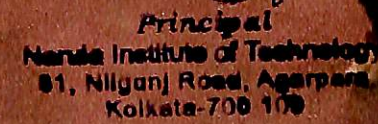 Principal
Narula Institute of Technology
81, Nilgunj Road, Agarpara
Kolkata-700 109